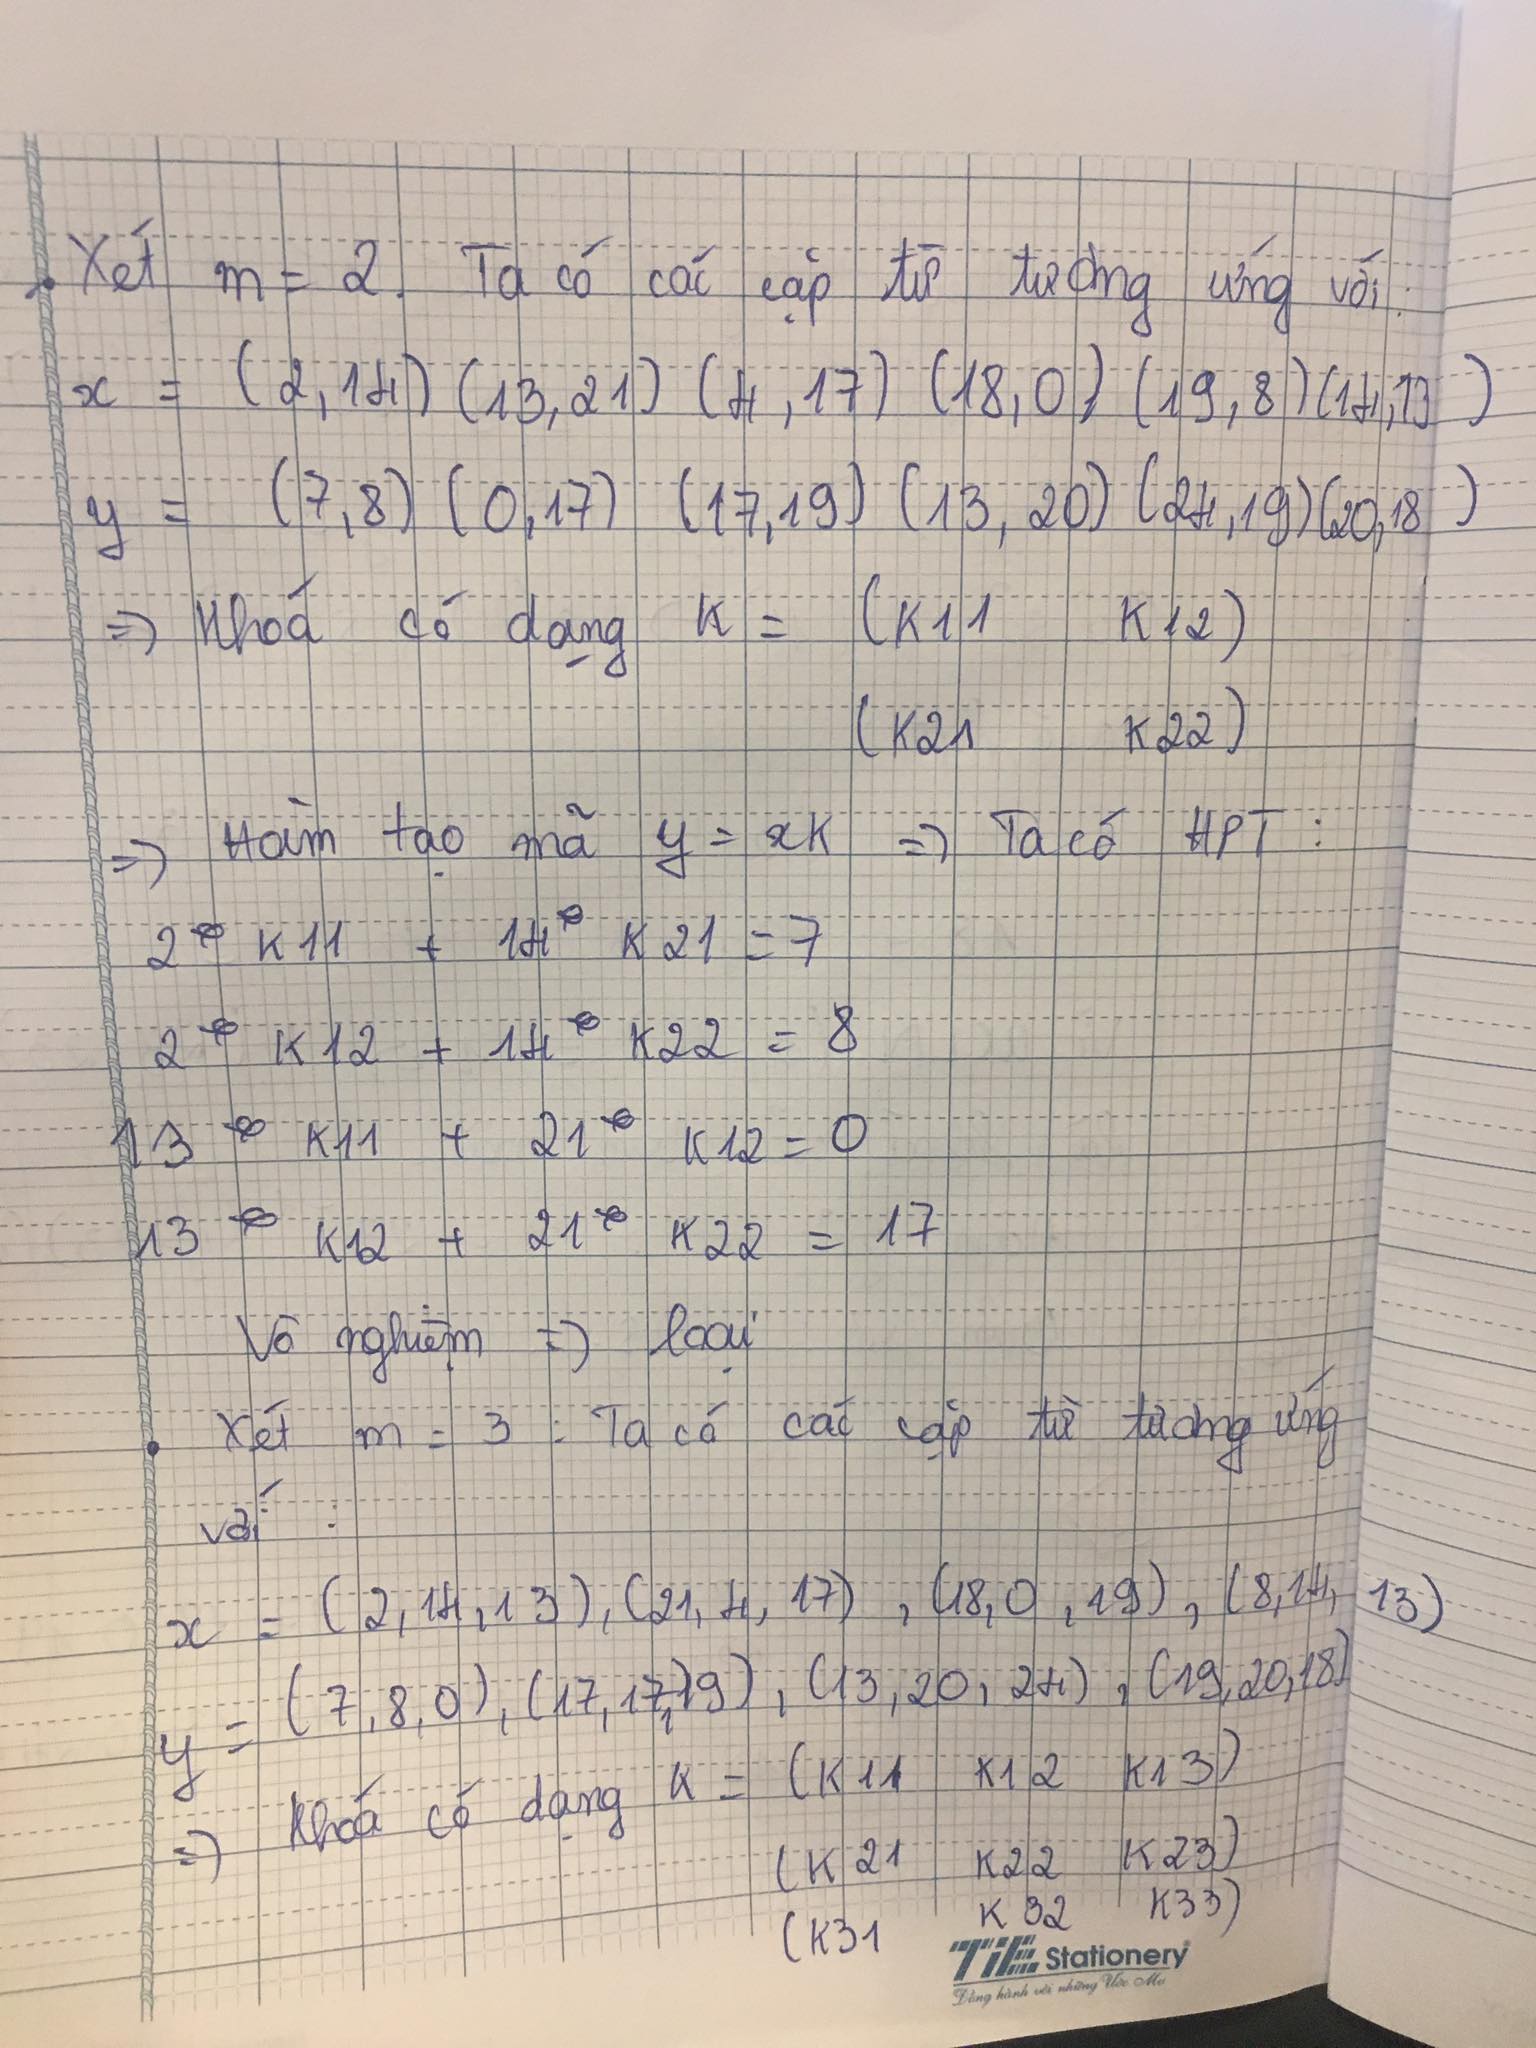 Xét m = 2. Ta có các cặp từ tương ứng với:
x = (2,14) (13,21) (4,17) (18,0) (19,8) (14,13)
y = (7,8) (0,17) (17,19) (13,20) (24,19) (20,18)
=> Khoá có dạng K = (K11 K12)
(K21 K22)
=> Hàm tạo mã y = xK => Ta có HPT:
2 * K11 + 14 * K21 = 7
2 * K12 + 14 * K22 = 8
13 * K11 + 21 * K12 = 0
13 * K12 + 21 * K22 = 17
Vô nghiệm => loại
Xét m = 3 : Ta có các cặp từ tương ứng
với :
x = (2,14,13), (21,4,17), (18,0,19), (8,14,13)
y = (7,8,0), (17,17,19), (13,20,24), (19,20,18)
=> Khoá có dạng K = (K11 K12 K13)
(K21 K22 K23)
(K31 K32 K33)
TiE Stationery
Đồng hành với những Ước Mơ